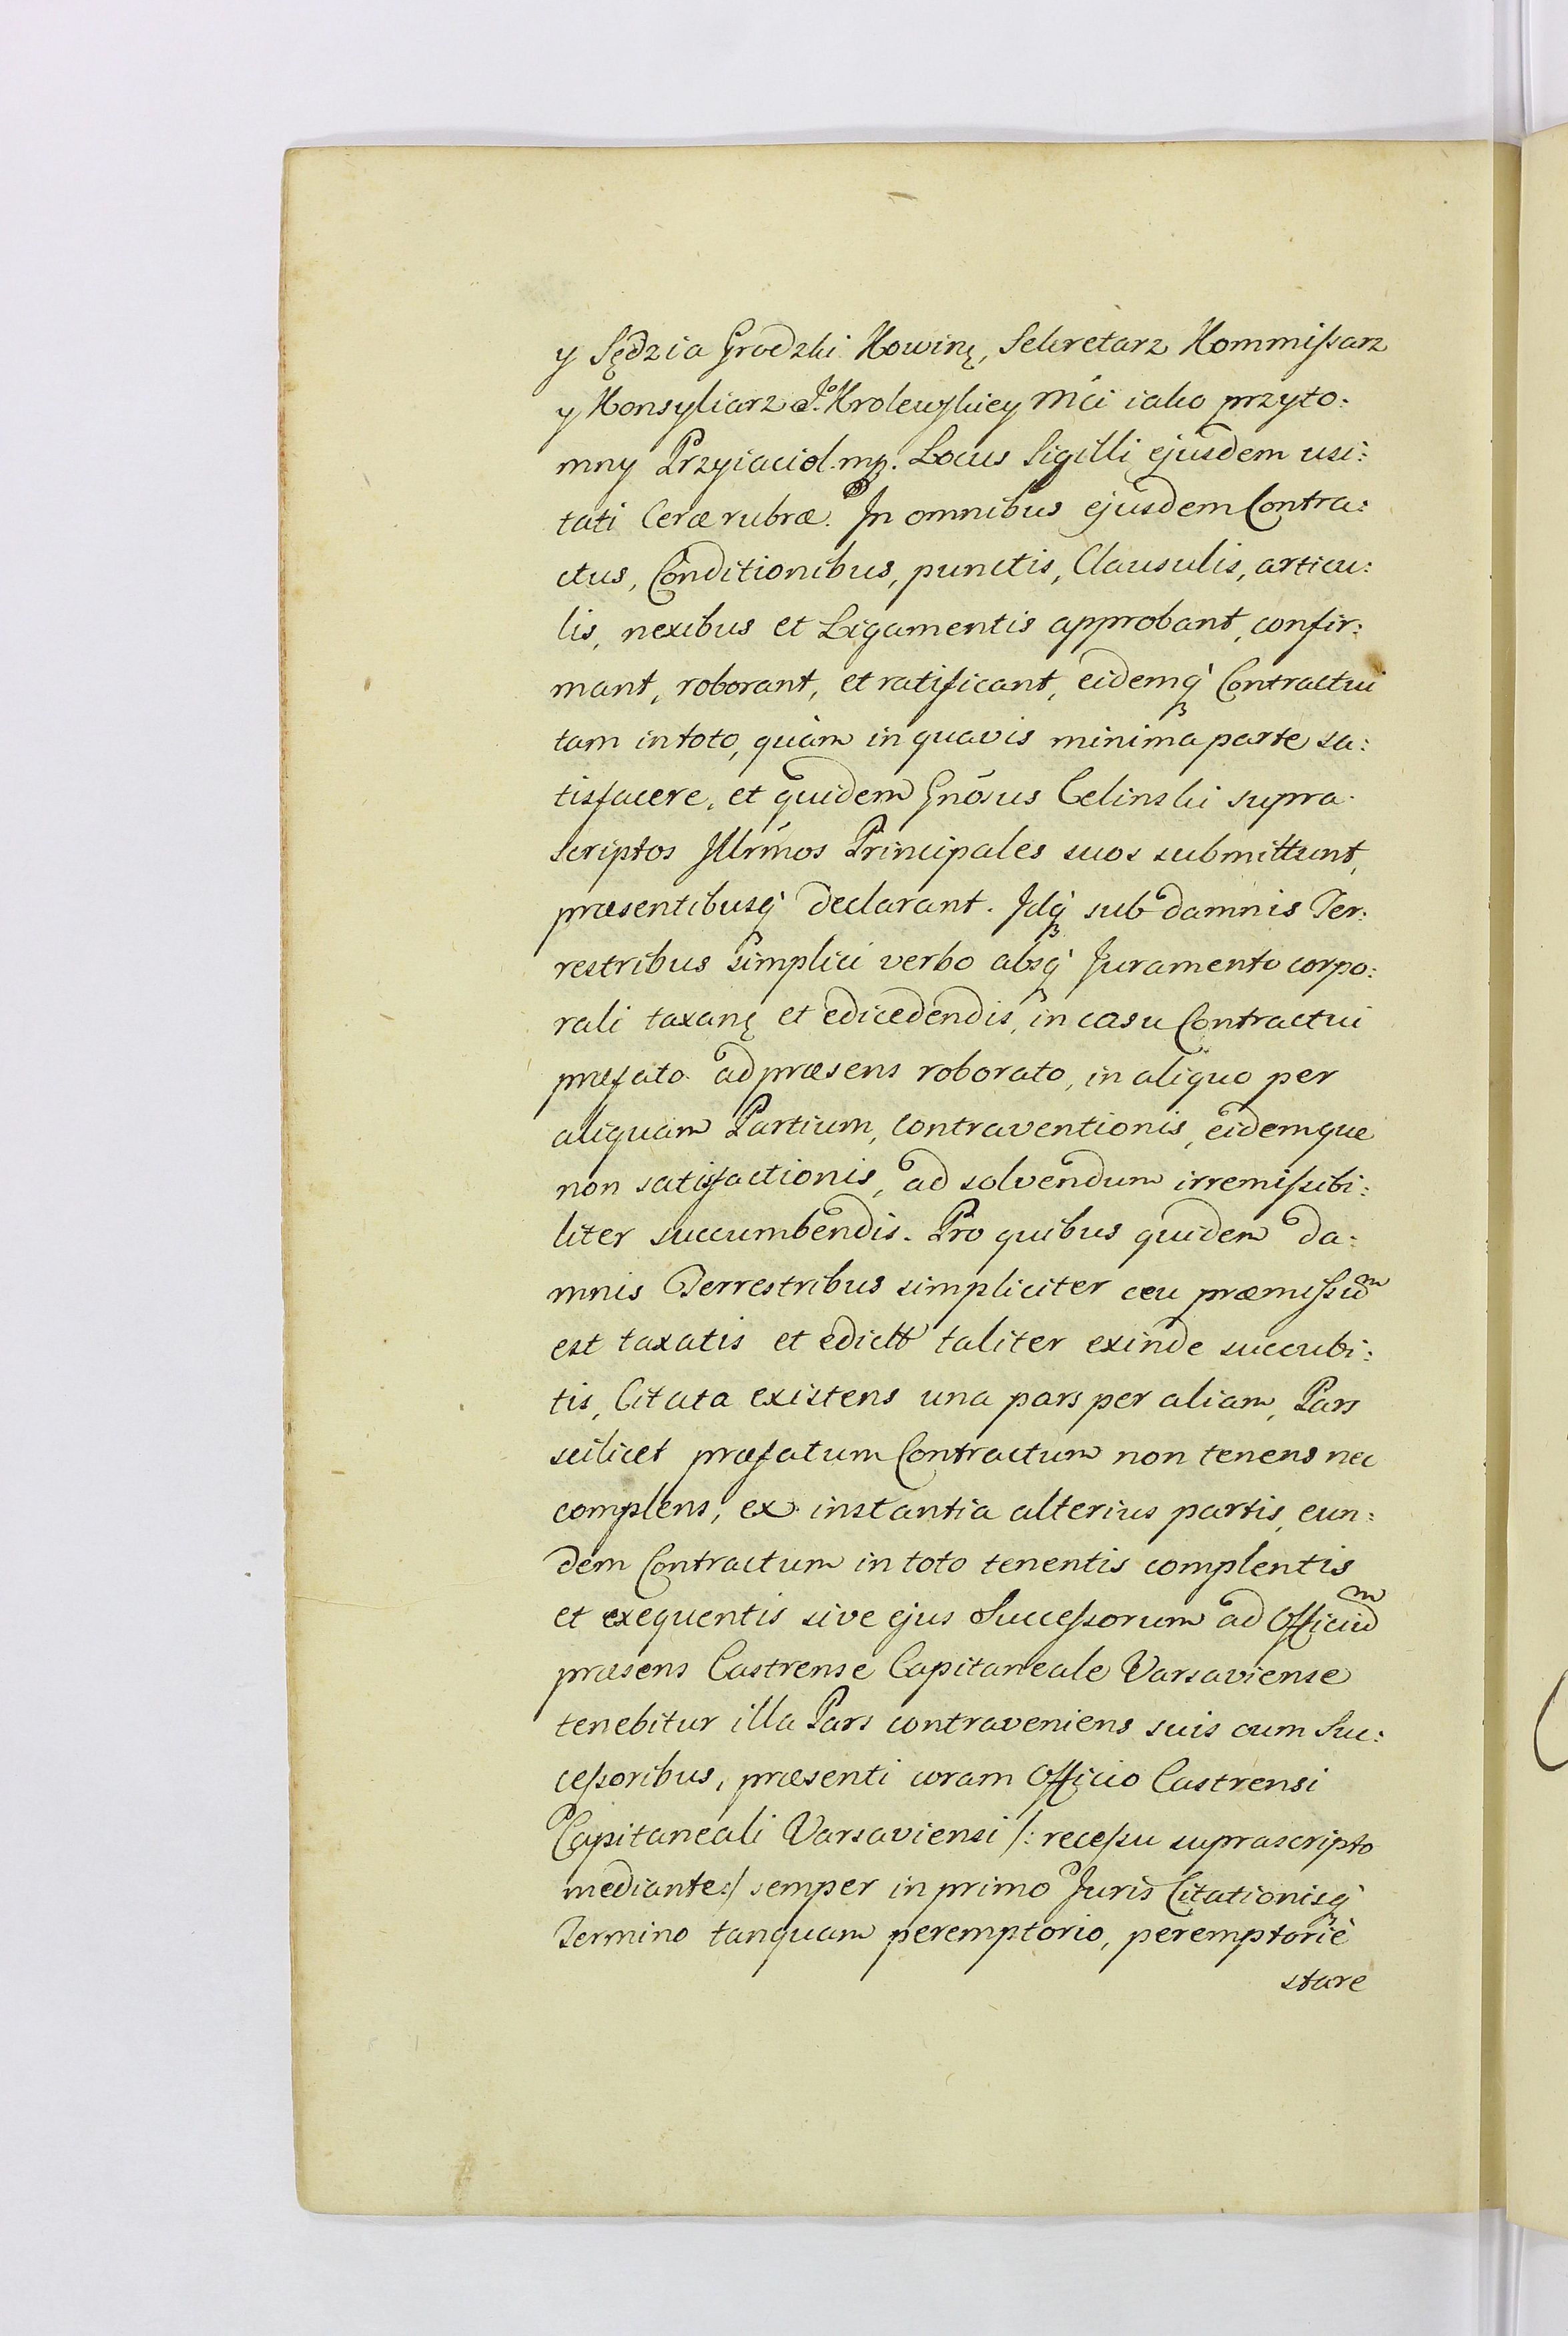 y Sędzia Grodzki Kowinę, Sekretarz Kommissarz
y Konsyliarz Jº Krolewskiey Mci iako przyto:
mny Przyiaciol. mp. Locus Sigilli ejusdem usi:
tati Ceræ rubræ. In omnibus ejusdem Contra:
ctus, Conditionibus, punctis, Clausulis, articu:
lis, nexibus et Ligamentis approbant, confir:
mant, roborant, et ratificant, eidemq́ Contractui
tam in toto, quàm in quavis minima parte sa:
tisfacere, et quidem Gnōsus Celinski supra
scriptos Illrm̄os Principales suos submittunt,
præsentibusq́ declarant. Idq́ sub damnis Ter:
restribus simplici verbo absq́ Juramento corpo:
rali taxanę et edicedendis, in casu Contractui
præfato ad præsens roborato, in aliquo per
aliquam Partium, contraventionis, eidemque
non satisfactionis, ad solvendum irremissibi:
liter succumbendis. Pro quibus quidem da:
mnis Terrestribus simpliciter ceu præmissuᵐ
est taxatis et edictt taliter exinde succubi:
tis, Citata existens una pars per aliam, Pars
scilicet præfatum Contractum non tenens nec
complens, ex instantia alterius partis, eun:
dem Contractum in toto tenentis complentis
et exequentis sive ejus Successorum ad Officiuᵐ
præsens Castrense Capitaneale Varsaviense
tenebitur illa Pars contraveniens suis cum Suc:
cessoribus, præsenti coram Officio Castrensi
Capitaneali Varsaviensi /: recessu suprascripto
mediante:/ semper in primo Juris Citationisq́
Termino tanquam peremptorio, peremptoriè
stare